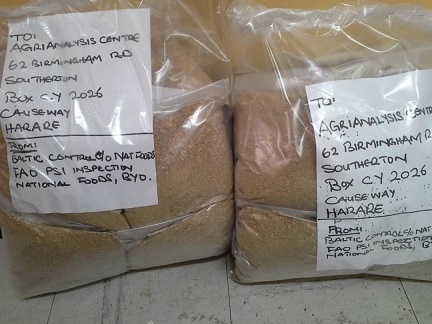 TO:
AGRIANALYSIS CENTRE
62 BIRMINGHAM RD
SOUTHERTON
BOX CY 2026
CAUSEWAY
HARARE
FROM:
BALTIC CONTROL c/o NAT FOODS
FAO PSI INSPECTION
NATIONAL FOODS, BYO.
TO:
AGRIANALYSIS CENT
62 BIRMINGHAM R
SOUTHERTON
BOX CY 2026
CAUSEWAY
HARARE
FROM:
BALTIC CONTROL c/o NAT
FAO PSI INSPECTION
NATIONAL FOODS, BY